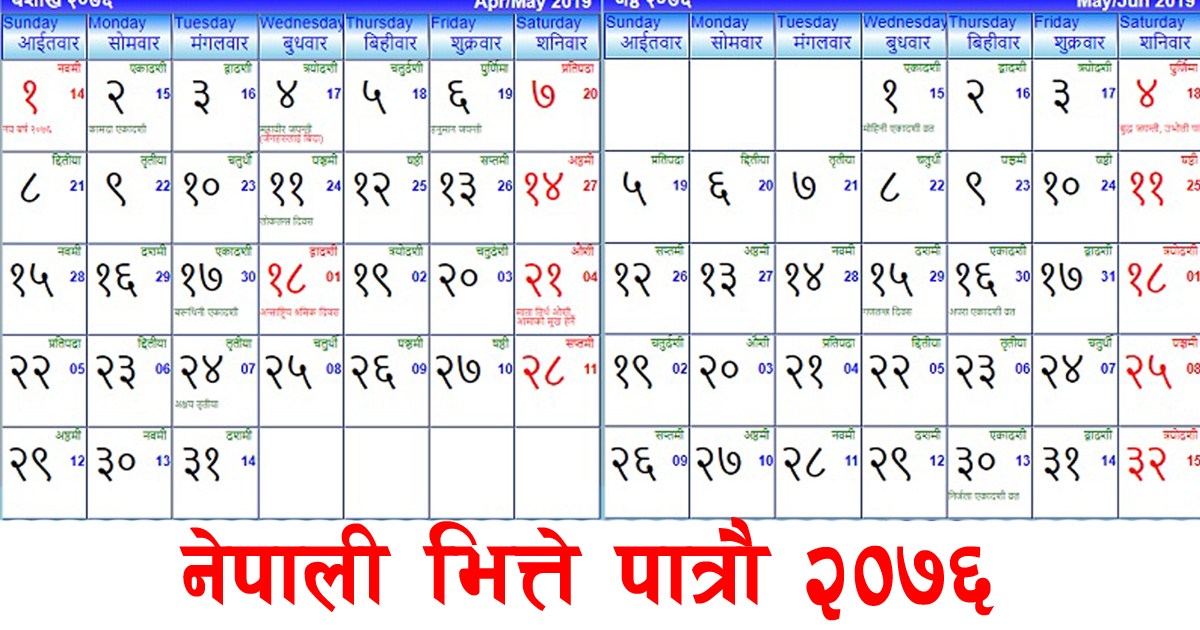 बैशाख २०७६ Apr/May 2019
Sunday Monday Tuesday Wednesday Thursday Friday Saturday
आईतवार सोमवार मंगलवार बुधवार बिहीवार शुक्रवार शनिवार
नवमी एकादशी द्वादशी त्रयोदशी चतुर्दशी पुर्णिमा प्रतिपदा
१ 14 २ 15 ३ 16 ४ 17 ५ 18 ६ 19 ७ 20
नव बर्ष २०७६ कामदा एकादशी महावीर जयन्ती हनुमान जयन्ती
द्वितीया तृतीया चतुर्थी पञ्चमी षष्ठी सप्तमी अष्ठमी
८ 21 ९ 22 १० 23 ११ 24 १२ 25 १३ 26 १४ 27
लोकतन्त्र दिवस
नवमी दशमी एकादशी द्वादशी त्रयोदशी चतुर्दशी औंशी
१५ 28 १६ 29 १७ 30 १८ 01 १९ 02 २० 03 २१ 04
बरूथिनी एकादशी अन्तराष्ट्रिय श्रमिक दिवस माता तिर्थ औंशी,
आमाको मुख हेर्ने
प्रतिपदा द्वितीया तृतीया चतुर्थी पञ्चमी षष्ठी सप्तमी
२२ 05 २३ 06 २४ 07 २५ 08 २६ 09 २७ 10 २८ 11
अक्षय तृतीया
अष्ठमी नवमी दशमी
२९ 12 ३० 13 ३१ 14
जेठ २०७६ May/Jun 2019
Sunday Monday Tuesday Wednesday Thursday Friday Saturday
आईतवार सोमवार मंगलवार बुधवार बिहीवार शुक्रवार शनिवार
एकादशी द्वादशी त्रयोदशी पुर्णिमा
१ 15 २ 16 ३ 17 ४ 18
मोहिनी एकादशी व्रत बुद्ध जयन्ती, उभौली
प्रतिपदा द्वितीया तृतीया चतुर्थी पञ्चमी षष्ठी षष्ठी
५ 19 ६ 20 ७ 21 ८ 22 ९ 23 १० 24 ११ 25
सप्तमी अष्ठमी नवमी दशमी एकादशी द्वादशी त्रयोदशी
१२ 26 १३ 27 १४ 28 १५ 29 १६ 30 १७ 31 १८ 01
गणतन्त्र दिवस अपरा एकादशी व्रत
चतुर्दशी औंशी प्रतिपदा द्वितीया तृतीया चतुर्थी पञ्चमी
१९ 02 २० 03 २१ 04 २२ 05 २३ 06 २४ 07 २५ 08
सप्तमी अष्ठमी नवमी दशमी एकादशी द्वादशी त्रयोदशी
२६ 09 २७ 10 २८ 11 २९ 12 ३० 13 ३१ 14 ३२ 15
निर्जला एकादशी व्रत
नेपाली भित्ते पात्रौ २०७६